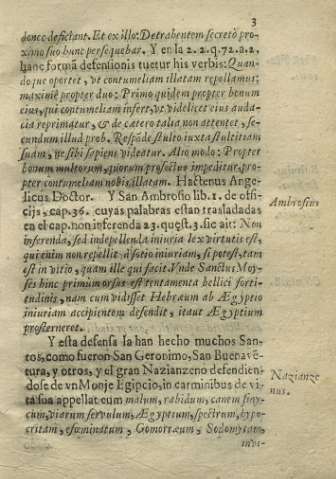 3
donec deficiant. Et ex illo: Detrahentem secretò pro-
ximo suo hunc persequebar. Y en la 2.2.q.72.a.2.
hanc formā defensionis tuetur his verbis: Quan-
doque oportet, vt contumeliam illatam repellamus;
maximè propter duo: Primo quidem propter bonum
eius, qui contumeliam infert, vt videlicet eius auda-
cia reprimatur, & de cætero talia non attentet, se-
cundum illud prob. Respōde stulto iuxta stultitiam
suam, ne sibi sapiens videatur. Alio modo: Propter
bonum multorum, quorum profectus impeditur pro-
pter contumeliam nobis illatam. Hactenus Ange-
licus Doctor. Y San Ambrosio lib. 1. de offi-
cijs, cap. 36. cuyas palabras estan trasladadas
Ambrosius
en el cap. non inferenda 23. quæst. 3. sic ait: Non
inferenda, sed impellenda iniuria lex virtutis est,
qui enim non repellit à socio iniuriam, si potest, tam
est in vitio, quam ille qui facit. Vnde Sanctus Moy-
ses hinc primum orsus est tentamenta bellici forti-
tudinis, nam cum vidisset Hebræum ab Ægyptio
iniuriam accipientem defendit, itaut Ægyptium
prosterneret.
Y esta defensa la han hecho muchos San-
tos, como fueron San Geronimo, San Buenavē-
tura, y otros, y el gran Nazianzeno defendien-
Nazianze
nus.
dose de vn Monje Egipcio, in carminibus de vi-
ta sua appellat eum malum, rabidum, canem finy-
cum, viarum servulum, Ægyptium, spectrum, hypo-
critam, efœminatum, Gomorræum, Sodomytam,
invi-